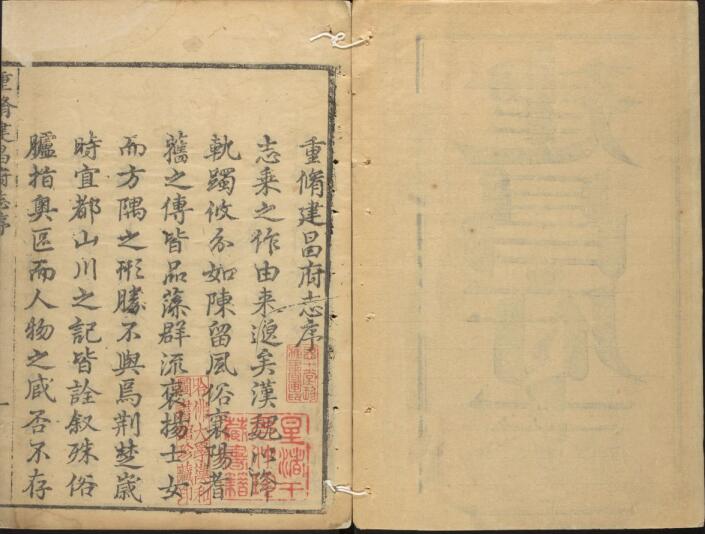 重脩建昌府志序
志乘之作由来邈矣漢魏以降
軌躅攸分如陳留風俗襄陽耆
舊之傳皆品藻群流褒揚士女
而方隅之形勝不與焉荆楚歲
時宜都山川之記皆詮叙殊俗
臚指奥區而人物之臧否不存
重脩建昌府志序
一
建昌府志